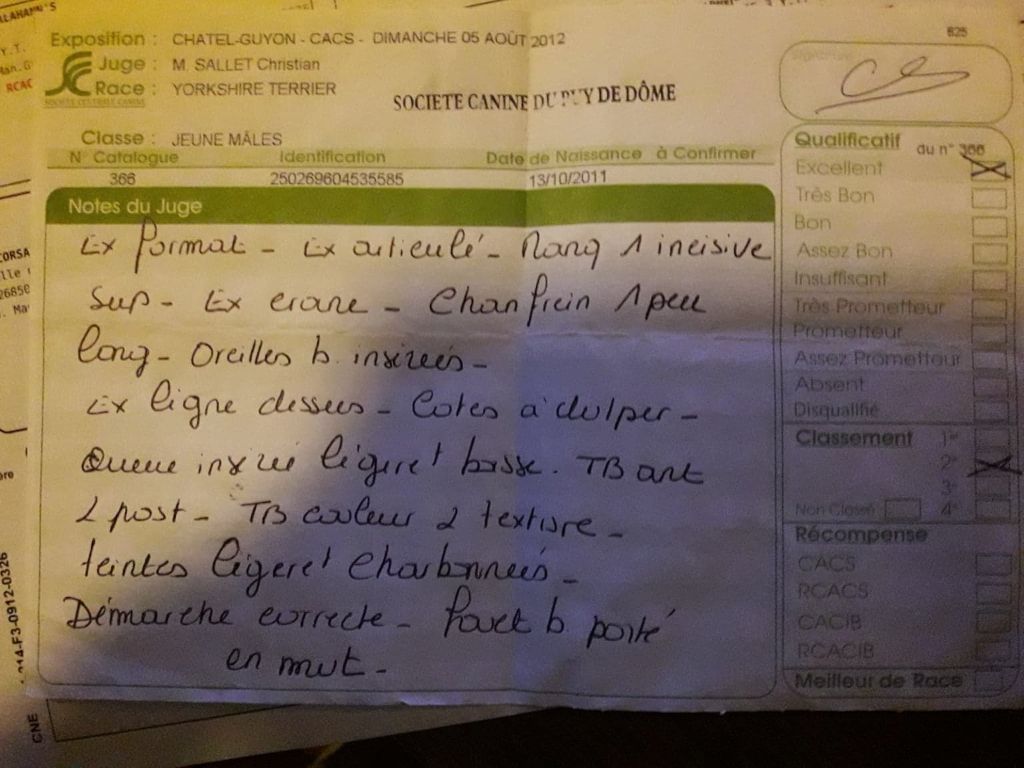 Exposition : CHATEL-GUYON - CACS - DIMANCHE 05 AOÛT 2012
Juge : M. SALLET Christian
Race : YORKSHIRE TERRIER
SOCIETE CANINE DU PUY DE DÔME
Classe : JEUNE MÂLES
N° Catalogue Identification Date de Naissance à Confirmer
366 250269604535585 13/10/2011
Notes du Juge
Ex format - Ex articulé - Manq 1 incisive
Sup - Ex crane - Chanfrein 1 peu
long - Oreilles b. insérées -
Ex ligne dessus - Cotes à
Queue insérée légeret basse. TB ant
& post - TB couleur & texture -
teintes légeret charbonnées -
Démarche correcte - Fouet b. porté
en mvt -
625
Qualificatif du n° 366
Excellent
Très Bon
Bon
Assez Bon
Insuffisant
Très Prometteur
Prometteur
Assez Prometteur
Absent
Disqualifié
Classement 1er
2e
3e
Non Classé 4e
Récompense
CACS
RCACS
CACIB
RCACIB
Meilleur de Race
RCAC
-F3-0912-0326
CNE